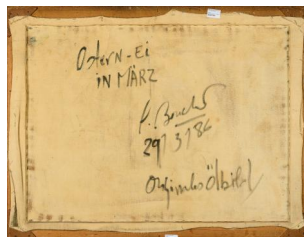 Ostern-Ei
IN MÄRZ
29 3 86
Originales Ölbild